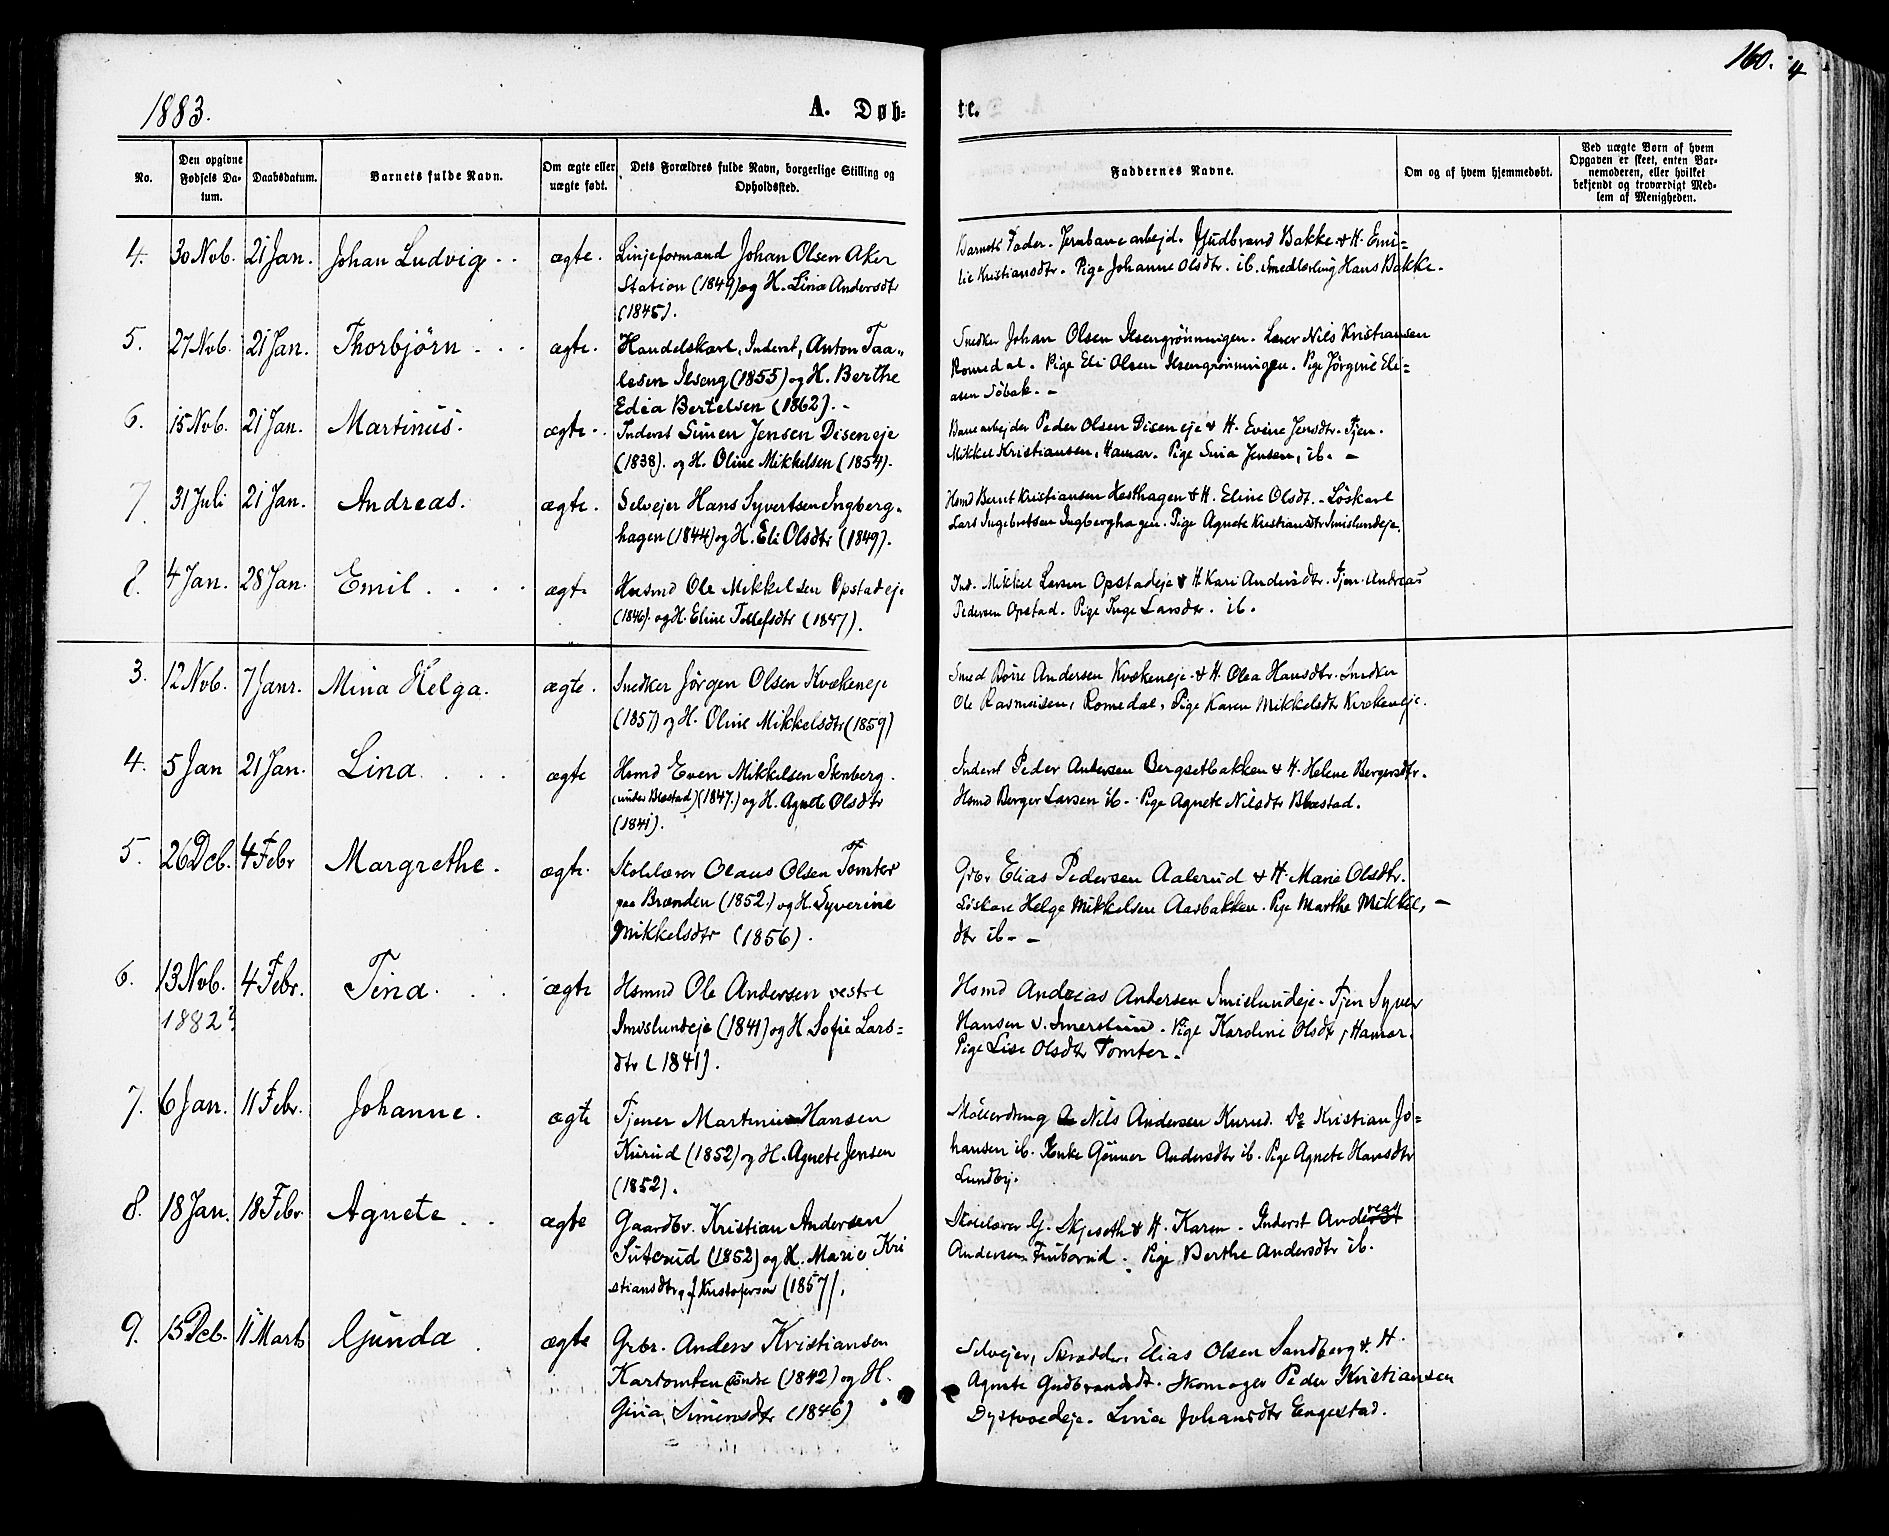 160.
4
1883.
A. Døb=
te.
No.
Den opgivne Fødsels Da-
tum.
Daabsdatum.
Barnets fulde Navn.
Om ægte eller uægte født.
Dets Forældres fulde Navn, borgerlige Stilling og Opholdssted.
Faddernes Navne.
Om og af hvem hjemmedøbt.
Ved uægte Børn af hvem
Opgaven er skeet, enten Bar-
nemoderen, eller hvilket
bekjendt og troværdigt Med-
lem af Menigheden.
4. 30 Nob. 21 Jan. Johan Ludvig ægte. Linjeformand Johan Olsen Aker
Station (1849) og H. Lina Andersdtr
(1845).
Barnets Fader. Jernbanearbejd. Gudbrand Bakke & H. Emi=
lie Kristiansdtr. Pige Johanne Olsdtr. ib. Smedlærling Hans Bakke.
5. 27 Nob. 21 Jan. Thorbjörn ægte. Handelskarl, Inderst, Anton Taa=
lesen Ilseng (1855) og H. Berthe
Edia Bertelsen (1862).
Snedker Johan Olsen Ilsengrönningen. Lærer Nils Kristiansen
Romedal. Pige Eli Olsen Ilsengrönningen. Pige Jörgine Eli=
asen Söbak.
6. 15 Nob. 21 Jan. Martinus. ægte. Inderst Simen Jensen Diseneje
(1838). og H. Oline Mikkelsen (1854).
Banearbejder Peder Olsen Diseneje & H. Evine Jensdtr. Tjen.
Mikkel Kristiansen, Hamar. Pige Sina Jensen, ib.
7. 31 Juli 21 Jan. Andreas. ægte. Selvejer Hans Syvertsen Ingberg=
hagen (1844) og H. Eli Olsdtr (1849).
Hsmd Bernt Kristiansen Hesthagen & H. Eline Olsdt. Löskarl
Lars Ingebretsen Ingberghagen. Pige Agnete Kristiansdtr Imislundeje.
8. 4 Jan. 28 Jan. Emil ægte Husmd Ole Mikkelsen Opstadeje
(1846). og H. Eline Tollefsdtr (1847).
Ind. Mikkel Larsen Opstadeje & H Kari Andersdtr. Tjen. Andreas
Pedersen Opstad. Pige Inge Larsdtr. ib.
3. 12 Nob. 7 Janr. Mina Helga. ægte. Snedker Jörgen Olsen Kvækeneje
(1857) og H. Oline Mikkelsdtr (1859)
Smed Andersen Kvækeneje & H. Olea Hansdtr. Snedker
Ole Rasmussen, Romedal, Pige Karen Mikkelsdtr Kvækeneje.
4. 5 Jan 21 Jan. Lina ægte Hsmd Even Mikkelsen Stenberg
(under Blæstad) (1847.) og H. Agnete Olsdtr
(1841).
Inderst Peder Andersen Bergsetbakken & H. Helene Bergersdtr.
Hsmd Berger Larsen ib. Pige Agnete Nilsdtr Blæstad.
5. 26 Deb. 4 Febr Margrethe. ægte. Skolelærer Olaus Olsen Tomter
paa Brænden (1852) og H. Syverine
Mikkelsdtr (1856).
Grbr Elias Pedersen Aalerud & H. Marie Olsdtr.
Löskarl Helge Mikkelsen Aasbakken. Pige Marthe Mikkels=
dtr ib.
6. 13 Nob. 4 Febr. Tina. ægte Hsmnd Ole Andersen vestre
1882?
Imislundeje (1841) og H Sofie Lars=
dtr (1841).
Hsmd Andreas Andersen Imislundeje. Tjen Syver
Hansen v. Imerslund. Pige Karoline Olsdtr, Hamar.
Pige Lise Olsdtr Tomter.
7. 6 Jan. 11 Febr. Johanne. ægte Tjener Martinus Hansen
Kurud (1852) og H. Agnete Jensen
(1852).
Möllerdreng Nils Andersen Kurud. Do Kristian Jo=
hansen ib. Enke Gönner Andersdtr ib. Pige Agnete Hansdtr
Lundby.
8. 18 Jan. 18 Febr. Agnete ægte Gaardbr. Kristian Andersen
Suterud (1852) og H. Marie Kri
stiansdtr, f. Kristofersen (1857).
Skolelærer G. Skjeseth & H. Karen. Inderst Andreas
Andersen Finborud. Pige Berthe Andersdtr ib.
9. 15 Deb. 11 Marts Gunda ægte Grbr. Anders Kristiansen
Kartomten söndre (1842) og H.
Gina Simensdtr (1846)
Selvejer, Skrædder, Elias Olsen Sandberg & H.
Agnete Gudbrandsdt. Skomager Peder Kristiansen
Dystvoldeje. Lina Johansdtr Engestad.